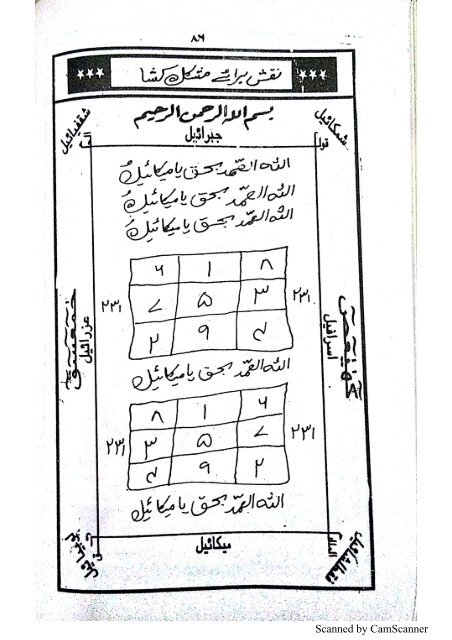 ۸۶
نقش برائے مشکل کشا
بسم الله الرحمن الرحیم
شمکائیل
جبرائیل
قولہ
الله الصّمد بحق یا میکائیلُ
الله الصّمد بحق یا میکائیلُ
الله الصّمد بحق یا میکائیلُ
۶ ۱ ۸
۲۳۱ ۷ ۵ ۳ ۲۳۱
۲ ۹ ۴
کھیعص
اسرافیل
عزرائیل
حمعسق
الله الصّمد بحق یا میکائیل
۸ ۱ ۶
۲۳۱ ۳ ۵ ۷ ۲۳۱
۴ ۹ ۲
الله الصّمد بحق یا میکائیل
میکائیل
Scanned by CamScanner